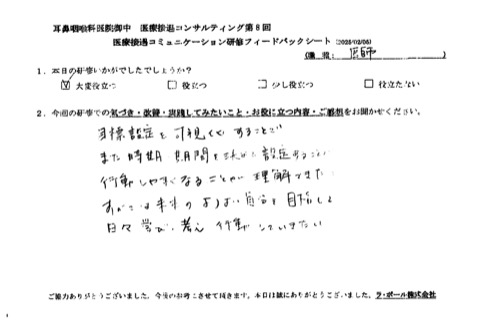 耳鼻咽喉科医院御中 医療接遇コンサルティング第8回
医療接遇コミュニケーション研修フィードバックシート (2025/02/05)
(職種: 医師 )
1．本日の研修いかがでしたでしょうか？
☑ 大変役立つ □ 役立つ □ 少し役立つ □ 役立たない
2．今回の研修での気づき・改善・実践してみたいこと・お役に立つ内容・ご感想をお聞かせください。
目標設定を可視化することで
また時期 期間を 設定すること
行動しやすくなることが理解できた
未来のよりよい自分を目指して
日々学び、考え 行動していきたい
ご協力ありがとうございました。今後の参考にさせて頂きます。本日は誠にありがとうございました。ラ・ポール株式会社